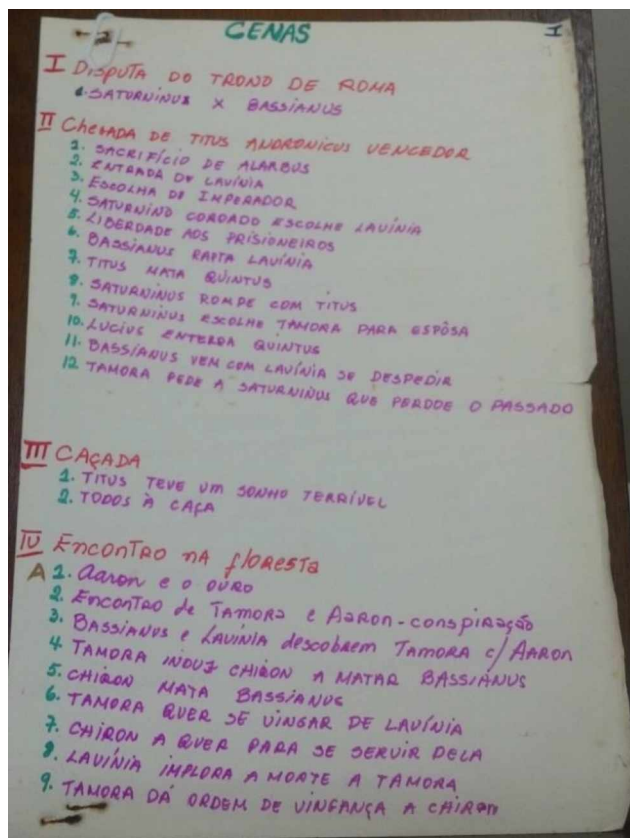 CENAS
I
I DISPUTA DO TRONO DE ROMA
1. SATURNINUS X BASSIANUS
II CHEGADA DE TITUS ANDRONICUS VENCEDOR
1. SACRIFÍCIO DE ALARBUS
2. ENTRADA DE LAVÍNIA
3. ESCOLHA DE IMPERADOR
4. SATURNINO COROADO ESCOLHE LAVÍNIA
5. LIBERDADE AOS PRISIONEIROS
6. BASSIANUS RAPTA LAVÍNIA
7. TITUS MATA QUINTUS
8. SATURNINUS ROMPE COM TITUS
9. SATURNINUS ESCOLHE TAMORA PARA ESPÔSA
10. LUCIUS ENTERRA QUINTUS
11. BASSIANUS VEM COM LAVÍNIA SE DESPEDIR
12 TAMORA PEDE A SATURNINUS QUE PERDOE O PASSADO
III CAÇADA
1. TITUS TEVE UM SONHO TERRÍVEL
2. TODOS À CAÇA
IV Encontro na floresta
A 1. Aaron e o ouro
2. Encontro de Tamora e Aaron - conspiração
3. BASSIANUS e LAVÍNIA descobrem TAMORA c/ AARON
4 TAMORA INDUZ CHIRON A MATAR BASSIANUS
5. CHIRON MATA BASSIANUS
6. TAMORA QUER SE VINGAR DE LAVÍNIA
7. CHIRON A QUER PARA SE SERVIR DELA
8. LAVÍNIA IMPLORA A MORTE A TAMORA
9. TAMORA DÁ ORDEM DE VINGANÇA A CHIRON